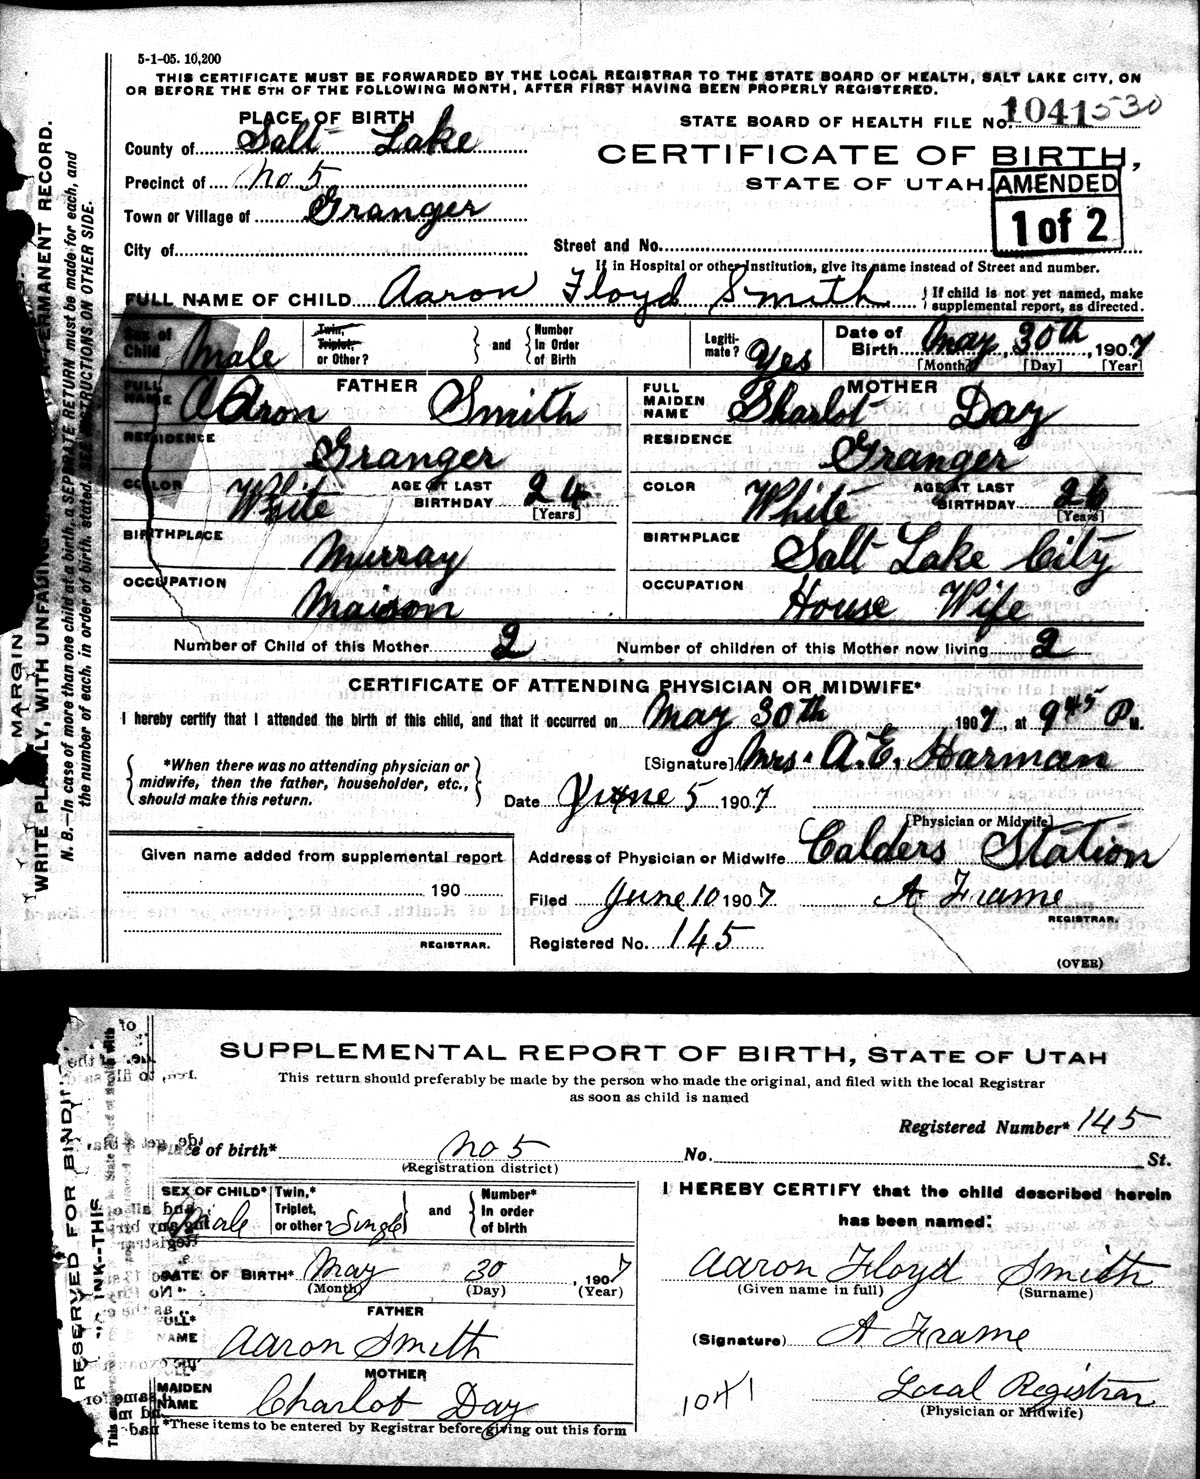 5-1-05. 10,200
THIS CERTIFICATE MUST BE FORWARDED BY THE LOCAL REGISTRAR TO THE STATE BOARD OF HEALTH, SALT LAKE CITY, ON
OR BEFORE THE 5TH OF THE FOLLOWING MONTH, AFTER FIRST HAVING BEEN PROPERLY REGISTERED.
PLACE OF BIRTH
STATE BOARD OF HEALTH FILE No. 1041 530
County of Salt Lake
CERTIFICATE OF BIRTH,
Precinct of No 5
STATE OF UTAH.
AMENDED
1 of 2
Town or Village of Granger
City of
Street and No.
If in Hospital or other Institution, give its name instead of Street and number.
FULL NAME OF CHILD Aaron Floyd Smith
If child is not yet named, make
supplemental report, as directed.
Sex of
Child Male
Twin,
Triplet,
or Other?
and
Number
In Order
of Birth
Legiti-
mate? Yes
Date of
Birth May 30th, 1907
[Month] [Day] [Year]
FATHER
FULL
NAME Aaron Smith
MOTHER
FULL
MAIDEN
NAME Sharlot Day
RESIDENCE Granger
RESIDENCE Granger
COLOR White
AGE AT LAST
BIRTHDAY 24
[Years]
COLOR White
AGE AT LAST
BIRTHDAY 26
[Years]
BIRTHPLACE Murray
BIRTHPLACE Salt Lake City
OCCUPATION Maison
OCCUPATION House Wife
Number of Child of this Mother 2
Number of children of this Mother now living 2
CERTIFICATE OF ATTENDING PHYSICIAN OR MIDWIFE*
I hereby certify that I attended the birth of this child, and that it occurred on May 30th 1907, at 9 45 P M.
*When there was no attending physician or
midwife, then the father, householder, etc.,
should make this return.
[Signature] Mrs. A. E. Harman
Date June 5 1907
[Physician or Midwife]
Given name added from supplemental report
190
REGISTRAR.
Address of Physician or Midwife Calders Station
Filed June 10 1907 A Frame
REGISTRAR.
Registered No. 145
(OVER)
MARGIN
WRITE PLAINLY, WITH UNFADING PERMANENT RECORD.
N. B.—In case of more than one child at a birth, a SEPARATE RETURN must be made for each, and
the number of each, in order of birth, stated. SEE INSTRUCTIONS ON OTHER SIDE.
SUPPLEMENTAL REPORT OF BIRTH, STATE OF UTAH
This return should preferably be made by the person who made the original, and filed with the local Registrar
as soon as child is named
Registered Number* 145
Place of birth* No 5
(Registration district)
No. St.
SEX OF CHILD*
Male
Twin,*
Triplet,
or other Single
and
Number*
In order
of birth
I HEREBY CERTIFY that the child described herein
has been named:
DATE OF BIRTH* May 30, 1907
(Month) (Day) (Year)
Aaron Floyd Smith
(Given name in full) (Surname)
FATHER
FULL*
NAME Aaron Smith
(Signature) A Frame
MOTHER
MAIDEN
NAME Charlot Day
1041
Local Registrar
(Physician or Midwife)
*These items to be entered by Registrar before giving out this form
RESERVED FOR BINDING
INK--THIS